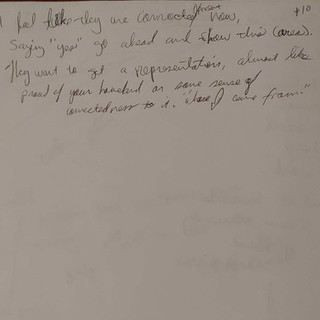 I feel they are connected now, $10
Saying "yes" go ahead and show this
They want to get a representation, almost like
proof of your homeland or some sense of
connectedness to it. "where I come from."